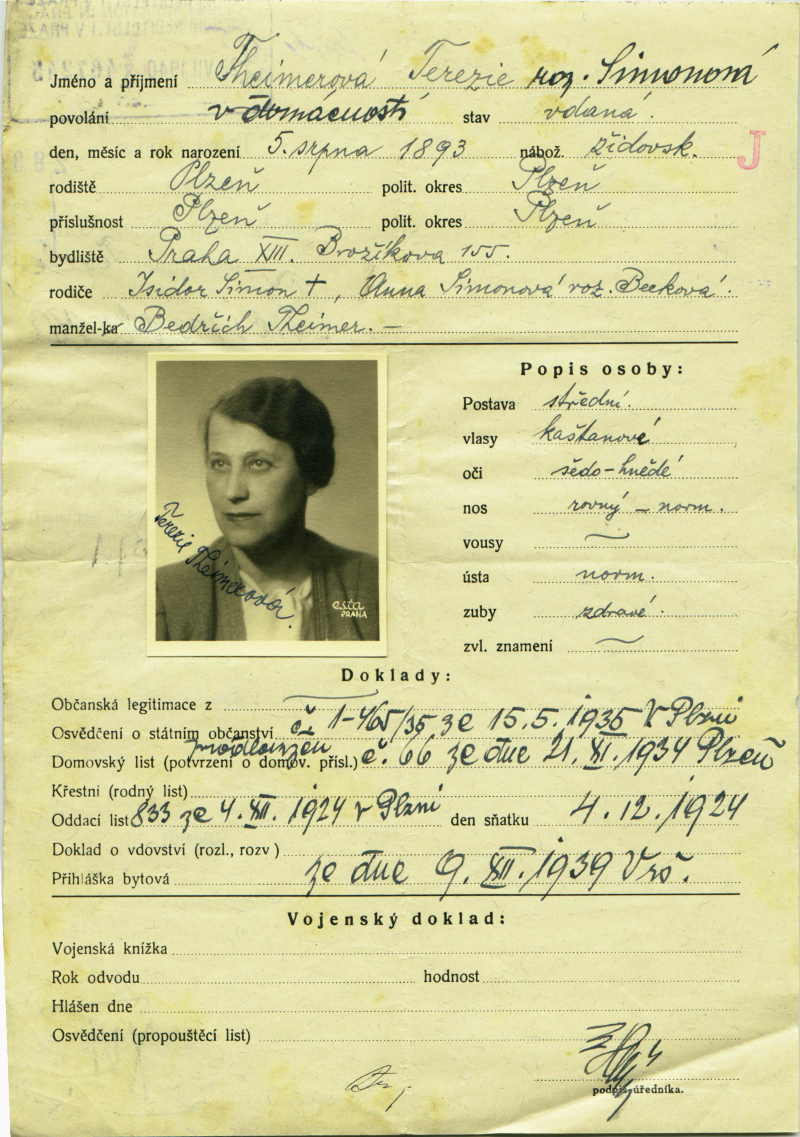 Jméno a příjmení Theimerová Terezie roz. Simonová
povolání v domácnosti stav vdaná.
den, měsíc a rok narození 5. srpna 1893 nábož. židovsk.
J
rodiště Plzeň polit. okres Plzeň
příslušnost Plzeň polit. okres Plzeň
bydliště Praha XIII. Brožíkova 155.
rodiče Isidor Simon +, Anna Simonová roz. Becková.
manžel-ka Bedřich Theimer. —
Popis osoby:
Postava střední.
vlasy kaštanové
oči šedo-hnědé
nos rovný — norm.
vousy
ústa norm.
zuby zdravé.
zvl. znamení
Terezie Theimerová.
esta
PRAHA
Doklady:
Občanská legitimace z
Osvědčení o státním občanství č. 1-465/35 ze 15.5.1935 v Plzni
Domovský list (potvrzení o domov. přísl.) č. 66 ze dne 21. XI. 1934 Plzeň
Křestní (rodný list)
Oddací list 833 ze 4. XII. 1924 v Plzni den sňatku 4.12.1924
Doklad o vdovství (rozl., rozv)
Přihláška bytová ze dne 9. XII. 1939 Vrš.
Vojenský doklad:
Vojenská knížka
Rok odvodu hodnost
Hlášen dne
Osvědčení (propouštěcí list)
podpis úředníka.